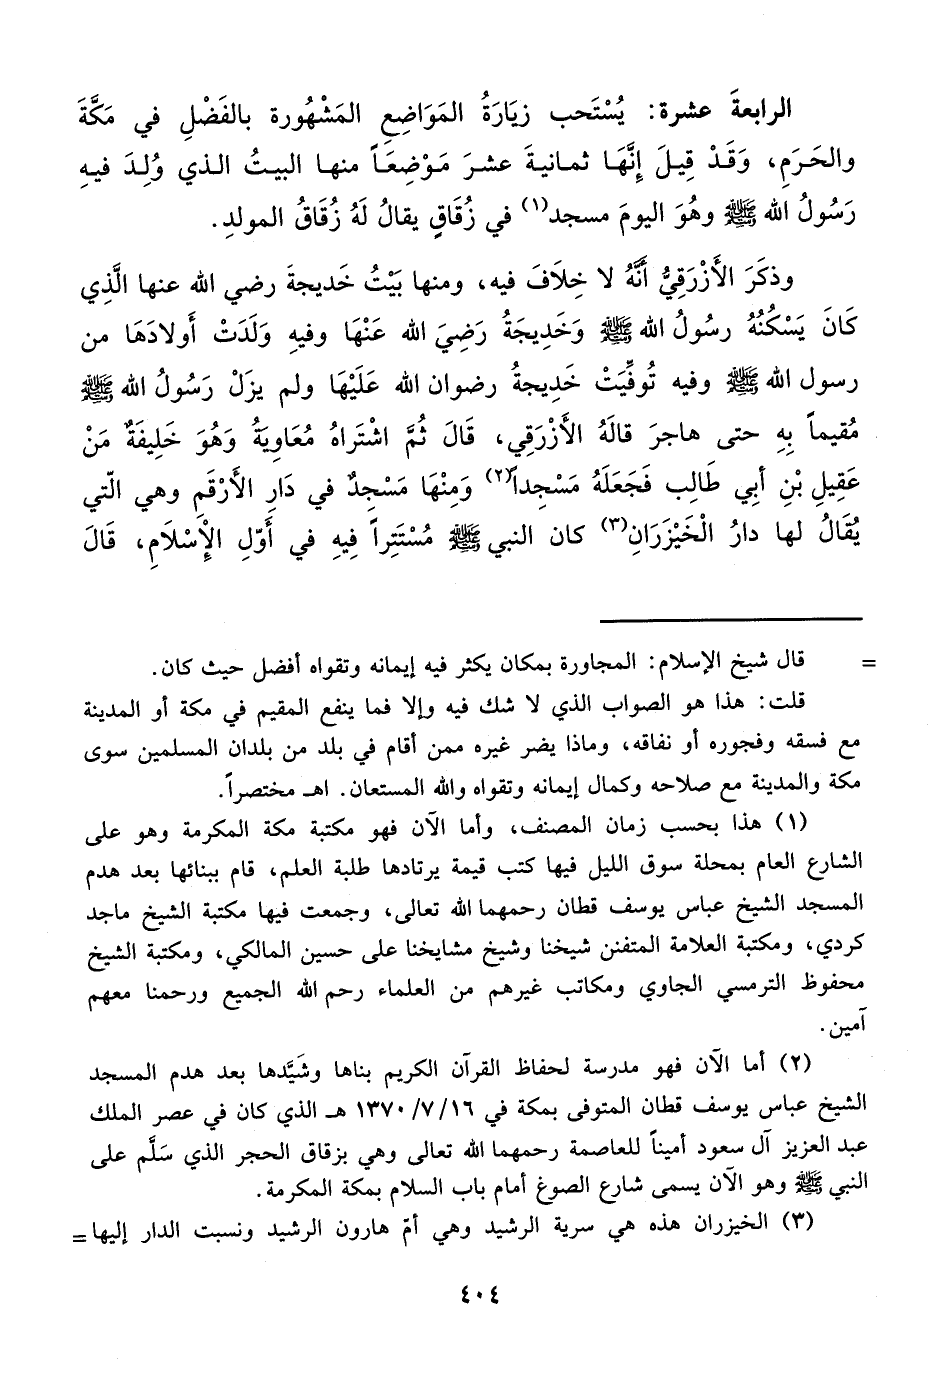 الرابعةَ عشرة: يُسْتَحب زيَارَةُ المَوَاضِعِ المَشْهُورة بالفَضْلِ في مَكَّةَ
والحَرَمِ، وَقَدْ قِيلَ إنَّهَا ثمانيةَ عشرَ مَوْضِعَاً منها البيتُ الذي وُلِدَ فيهِ
رَسُولُ الله ﷺ وهُوَ اليومَ مسجد(١) في زُقَاقٍ يقالُ لَهُ زُقَاقُ المولدِ.
وذكَرَ الأزْرَقِيُّ أنَّهُ لا خِلَافَ فيه، ومنها بَيْتُ خَديجةَ رضي الله عنها الَّذي
كَانَ يَسْكُنُهُ رسولُ الله ﷺ وَخَديجَةُ رَضِيَ الله عَنْهَا وفيهِ وَلَدَتْ أولادَهَا من
رسول الله ﷺ وفيه تُوفِّيَتْ خَديجةُ رضوان الله عَلَيْهَا ولم يزَلْ رَسُولُ الله ﷺ
مُقيماً بِهِ حتى هاجرَ قالَهُ الأزْرَقي، قَالَ ثُمَّ اشْتَراهُ مُعَاويَةُ وَهُوَ خَلِيفَةٌ مَنْ
عَقِيلِ بْنِ أبي طَالِب فَجَعَلَهُ مَسْجداً(٢) وَمِنْهَا مَسْجِدٌ في دَارِ الأَرْقَمِ وهي الّتي
يُقَالُ لها دارُ الْخَيْزَرَانِ(٣) كان النبي ﷺ مُسْتَتِراً فِيهِ في أَوّلِ الإْسْلَامِ، قَالَ
= قال شيخ الإسلام: المجاورة بمكان يكثر فيه إيمانه وتقواه أفضل حيث كان.
قلت: هذا هو الصواب الذي لا شك فيه وإلا فما ينفع المقيم في مكة أو المدينة
مع فسقه وفجوره أو نفاقه، وماذا يضر غيره ممن أقام في بلد من بلدان المسلمين سوى
مكة والمدينة مع صلاحه وكمال إيمانه وتقواه والله المستعان. اهـ مختصراً.
(١) هذا بحسب زمان المصنف، وأما الآن فهو مكتبة مكة المكرمة وهو على
الشارع العام بمحلة سوق الليل فيها كتب قيمة يرتادها طلبة العلم، قام ببنائها بعد هدم
المسجد الشيخ عباس يوسف قطان رحمهما الله تعالى، وجمعت فيها مكتبة الشيخ ماجد
كردي، ومكتبة العلامة المتفنن شيخنا وشيخ مشايخنا على حسين المالكي، ومكتبة الشيخ
محفوظ الترمسي الجاوي ومكاتب غيرهم من العلماء رحم الله الجميع ورحمنا معهم
آمين.
(٢) أما الآن فهو مدرسة لحفاظ القرآن الكريم بناها وشَيَّدها بعد هدم المسجد
الشيخ عباس يوسف قطان المتوفى بمكة في ١٣٧٠/٧/١٦ هـ الذي كان في عصر الملك
عبد العزيز آل سعود أميناً للعاصمة رحمهما الله تعالى وهي بزقاق الحجر الذي سَلَّم على
النبي ﷺ وهو الآن يسمى شارع الصوغ أمام باب السلام بمكة المكرمة.
(٣) الخيزران هذه هي سرية الرشيد وهي أمّ هارون الرشيد ونسبت الدار إليها =
٤٠٤